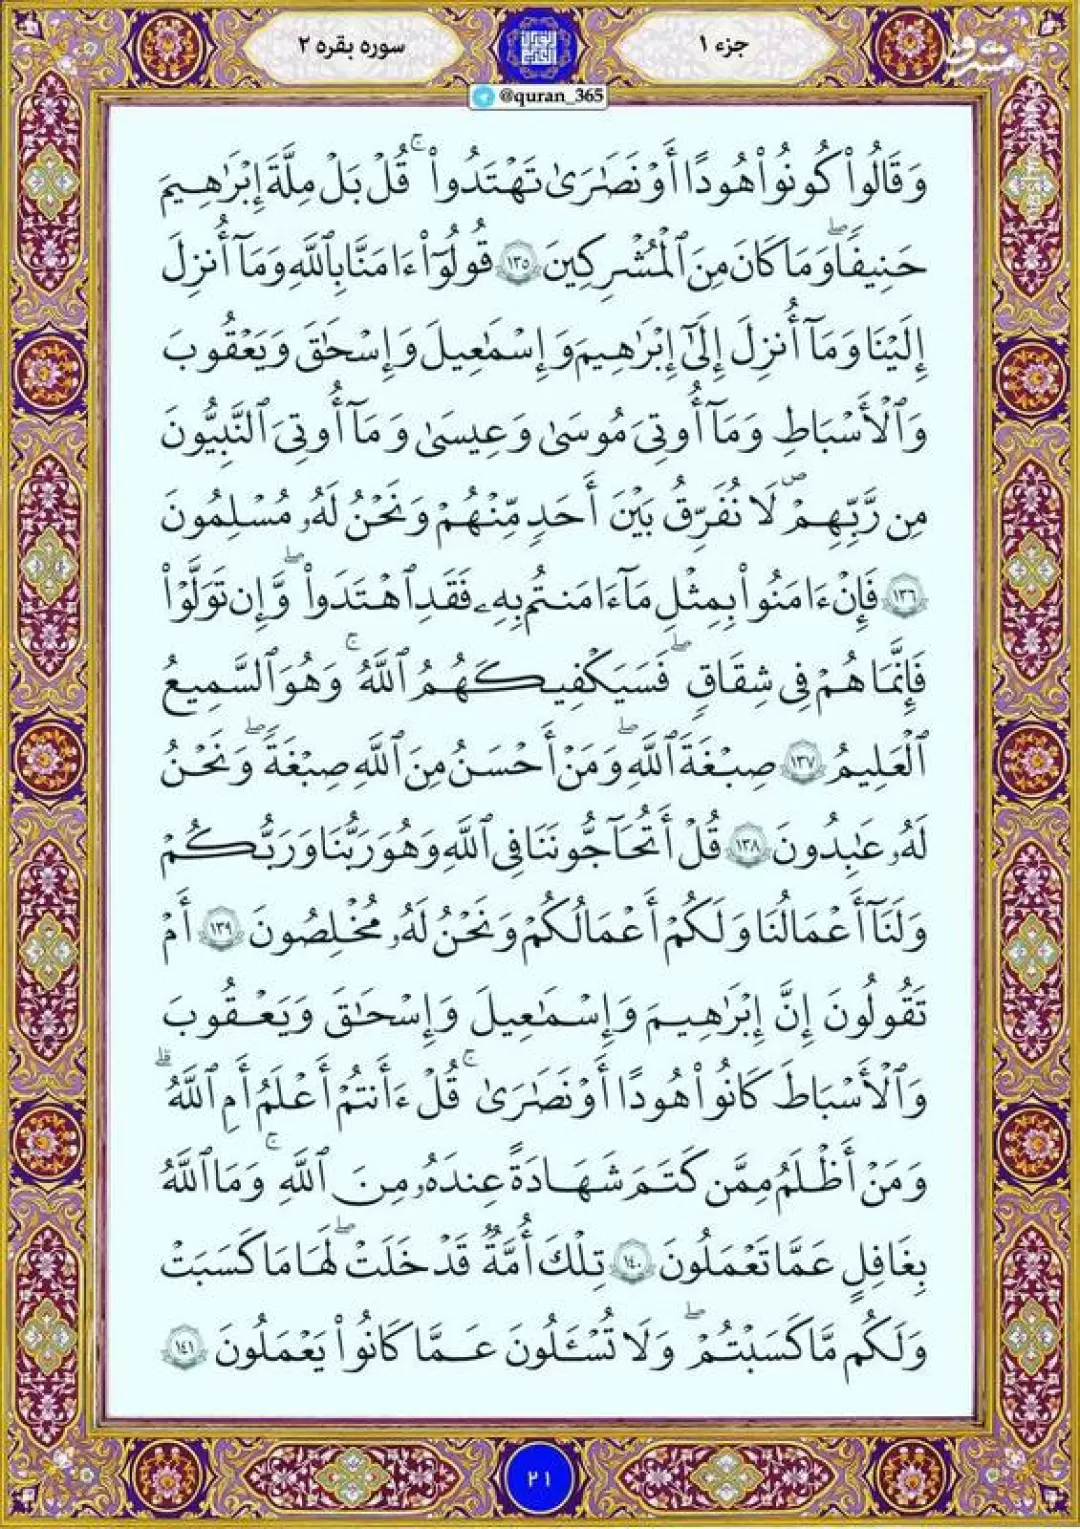 جزء ۱
سوره بقره ۲
مشرق
@quran_365
وَقَالُوا۟ كُونُوا۟ هُودًا أَوْ نَصَٰرَىٰ تَهْتَدُوا۟ ۚ قُلْ بَلْ مِلَّةَ إِبْرَٰهِيمَ
حَنِيفًا ۖ وَمَا كَانَ مِنَ ٱلْمُشْرِكِينَ ١٣٥ قُولُوٓا۟ ءَامَنَّا بِٱللَّهِ وَمَآ أُنزِلَ
إِلَيْنَا وَمَآ أُنزِلَ إِلَىٰٓ إِبْرَٰهِيمَ وَإِسْمَٰعِيلَ وَإِسْحَٰقَ وَيَعْقُوبَ
وَٱلْأَسْبَاطِ وَمَآ أُوتِىَ مُوسَىٰ وَعِيسَىٰ وَمَآ أُوتِىَ ٱلنَّبِيُّونَ
مِن رَّبِّهِمْ ۖ لَا نُفَرِّقُ بَيْنَ أَحَدٍ مِّنْهُمْ وَنَحْنُ لَهُۥ مُسْلِمُونَ
١٣٦ فَإِنْ ءَامَنُوا۟ بِمِثْلِ مَآ ءَامَنتُم بِهِۦ فَقَدِ ٱهْتَدَوا۟ ۖ وَّإِن تَوَلَّوْا۟
فَإِنَّمَا هُمْ فِى شِقَاقٍ ۖ فَسَيَكْفِيكَهُمُ ٱللَّهُ ۚ وَهُوَ ٱلسَّمِيعُ
ٱلْعَلِيمُ ١٣٧ صِبْغَةَ ٱللَّهِ ۖ وَمَنْ أَحْسَنُ مِنَ ٱللَّهِ صِبْغَةً ۖ وَنَحْنُ
لَهُۥ عَٰبِدُونَ ١٣٨ قُلْ أَتُحَآجُّونَنَا فِى ٱللَّهِ وَهُوَ رَبُّنَا وَرَبُّكُمْ
وَلَنَآ أَعْمَالُنَا وَلَكُمْ أَعْمَالُكُمْ وَنَحْنُ لَهُۥ مُخْلِصُونَ ١٣٩ أَمْ
تَقُولُونَ إِنَّ إِبْرَٰهِيمَ وَإِسْمَٰعِيلَ وَإِسْحَٰقَ وَيَعْقُوبَ
وَٱلْأَسْبَاطَ كَانُوا۟ هُودًا أَوْ نَصَٰرَىٰ ۚ قُلْ ءَأَنتُمْ أَعْلَمُ أَمِ ٱللَّهُ ۗ
وَمَنْ أَظْلَمُ مِمَّن كَتَمَ شَهَادَةً عِندَهُۥ مِنَ ٱللَّهِ ۚ وَمَا ٱللَّهُ
بِغَافِلٍ عَمَّا تَعْمَلُونَ ١٤٠ تِلْكَ أُمَّةٌ قَدْ خَلَتْ ۖ لَهَا مَا كَسَبَتْ
وَلَكُم مَّا كَسَبْتُمْ ۖ وَلَا تُسْـَٔلُونَ عَمَّا كَانُوا۟ يَعْمَلُونَ ١٤١
۲۱